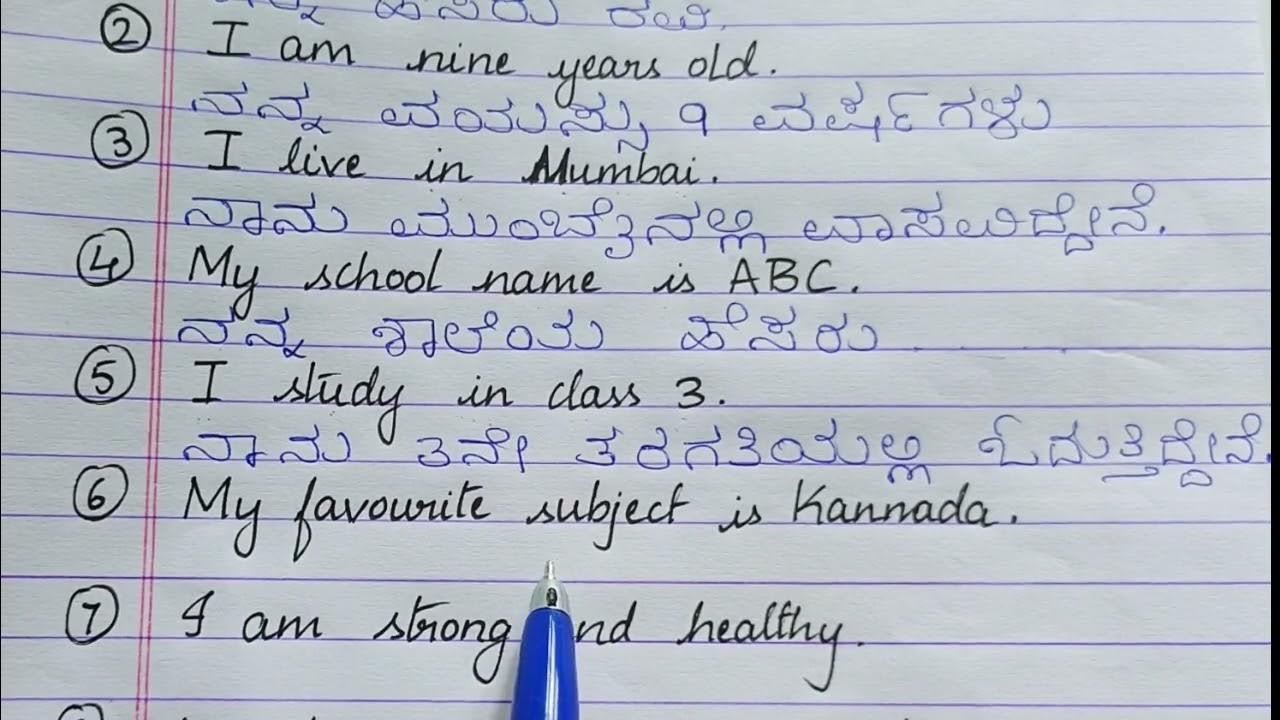 ನನ್ನ ಹೆಸರು ರವಿ.
② I am nine years old.
ನನ್ನ ವಯಸ್ಸು 9 ವರ್ಷಗಳು
③ I live in Mumbai.
ನಾನು ಮುಂಬೈನಲ್ಲಿ ವಾಸವಿದ್ದೇನೆ.
④ My school name is ABC.
ನನ್ನ ಶಾಲೆಯ ಹೆಸರು ..........
⑤ I study in class 3.
ನಾನು 3ನೇ ತರಗತಿಯಲ್ಲಿ ಓದುತ್ತಿದ್ದೇನೆ.
⑥ My favourite subject is Kannada.
⑦ I am strong and healthy.